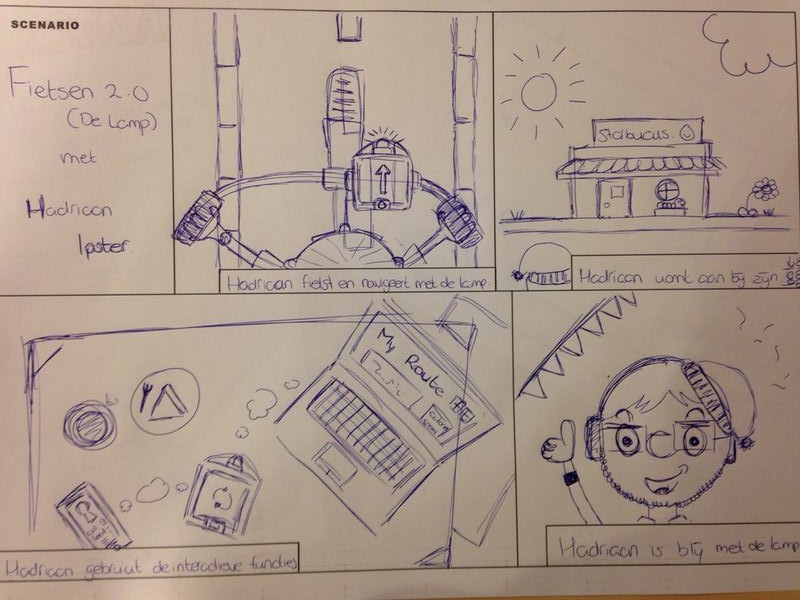 SCENARIO
Fietsen 2.0
(De Lamp)
met
Hadriaan
Ipster.
Hadriaan fietst en navigeert met de lamp.
Starbucus
Hadriaan komt aan bij zijn
My Route
Hadriaan gebruikt de interactieve functies
Hadriaan is blij met de lamp